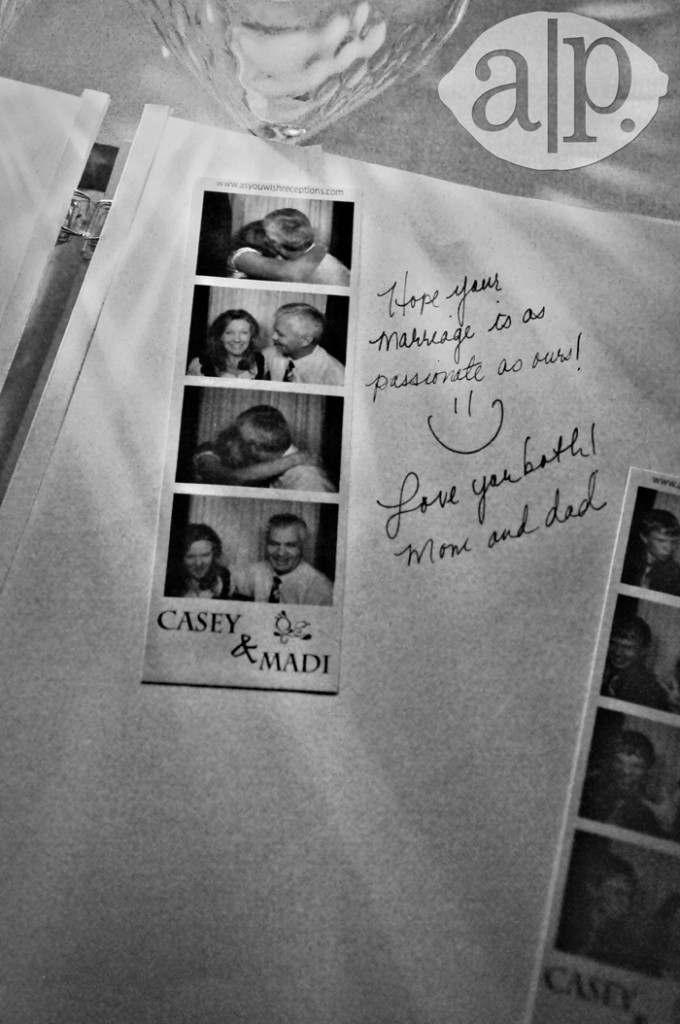 a|p.
www.asyouwishreceptions.com
Hope your
marriage is as
passionate as ours!
Love you both!
Mom and dad
CASEY
&
MADI
www.
CASEY